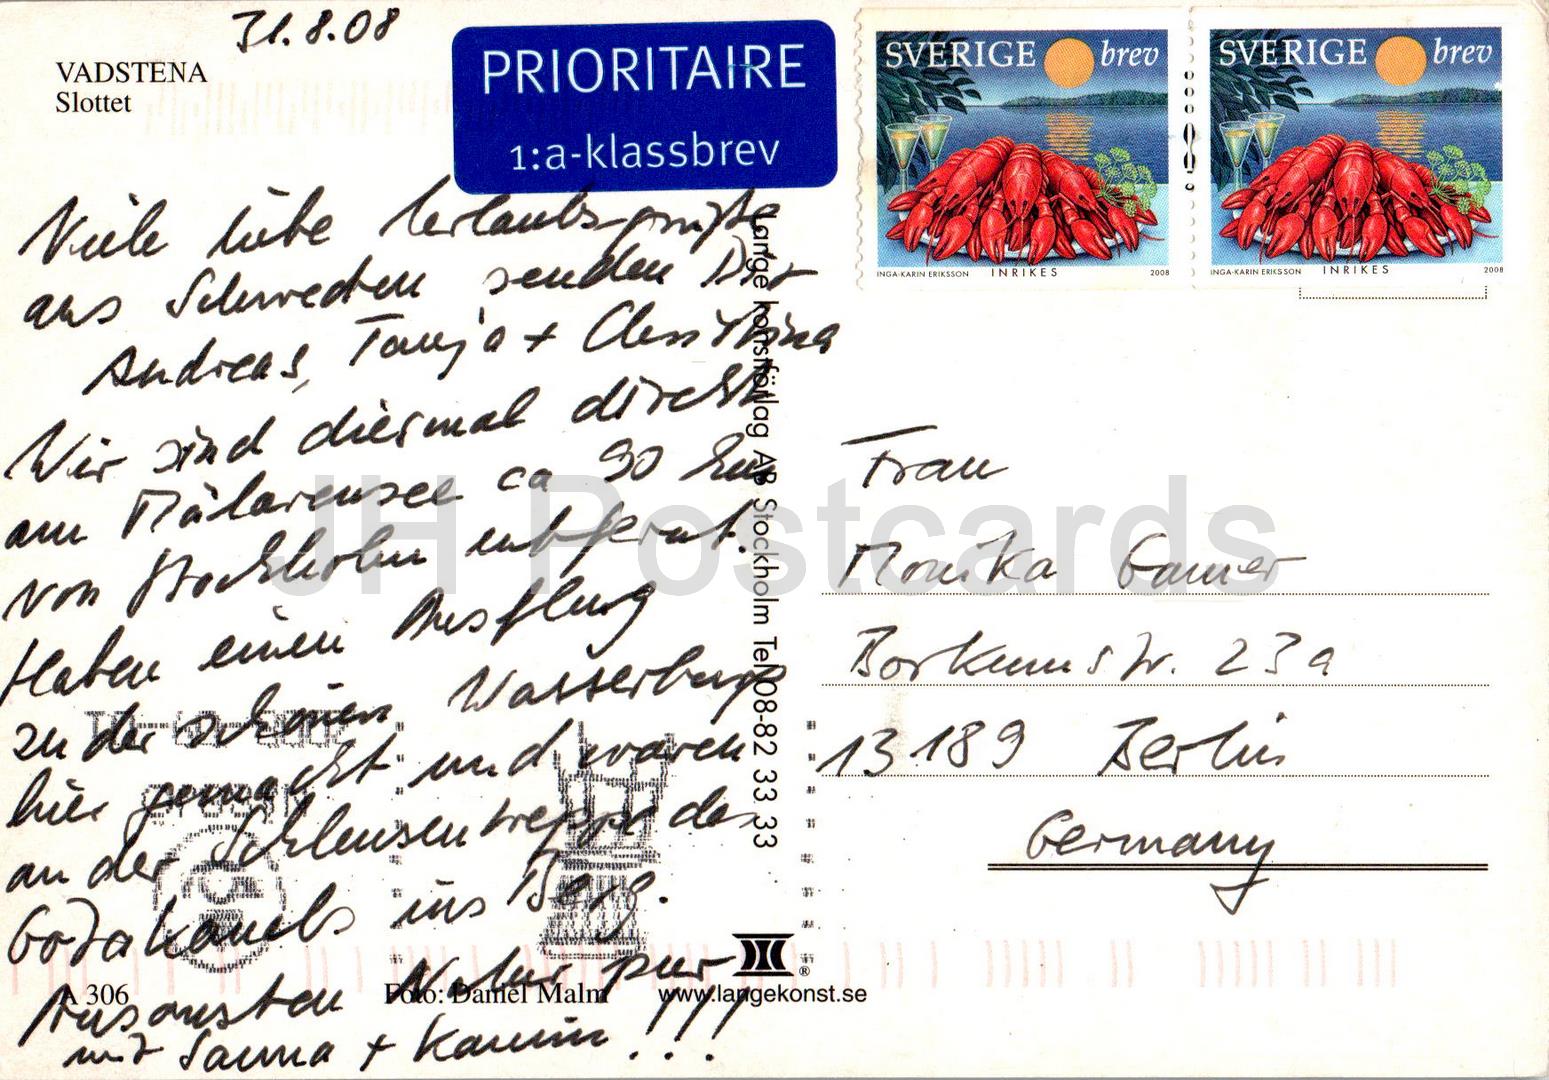 31.8.08
VADSTENA
Slottet
PRIORITAIRE
1:a-klassbrev
SVERIGE brev
INGA-KARIN ERIKSSON INRIKES 2008
SVERIGE brev
INGA-KARIN ERIKSSON INRIKES 2008
Viele liebe Urlaubsgrüße
aus Schweden senden Dir
Andreas, Tanja + Christina
Wir sind diesmal direkt
am Mälarensee ca 90 km
von Stockholm entfernt.
Haben einen Ausflug
zu der schönen Wasserburg
hier gemacht und waren
an der Schleusentreppe des
Götakanals in Berg.
Ansonsten Natur pur
mit Sauna + Kamin !!!
Lange konstförlag AB Stockholm Tel 08-82 33 33
Frau
Monika
Borkumstr. 23a
13189 Berlin
Germany
A 306
Foto: Daniel Malm
www.langekonst.se
®
JH Postcards